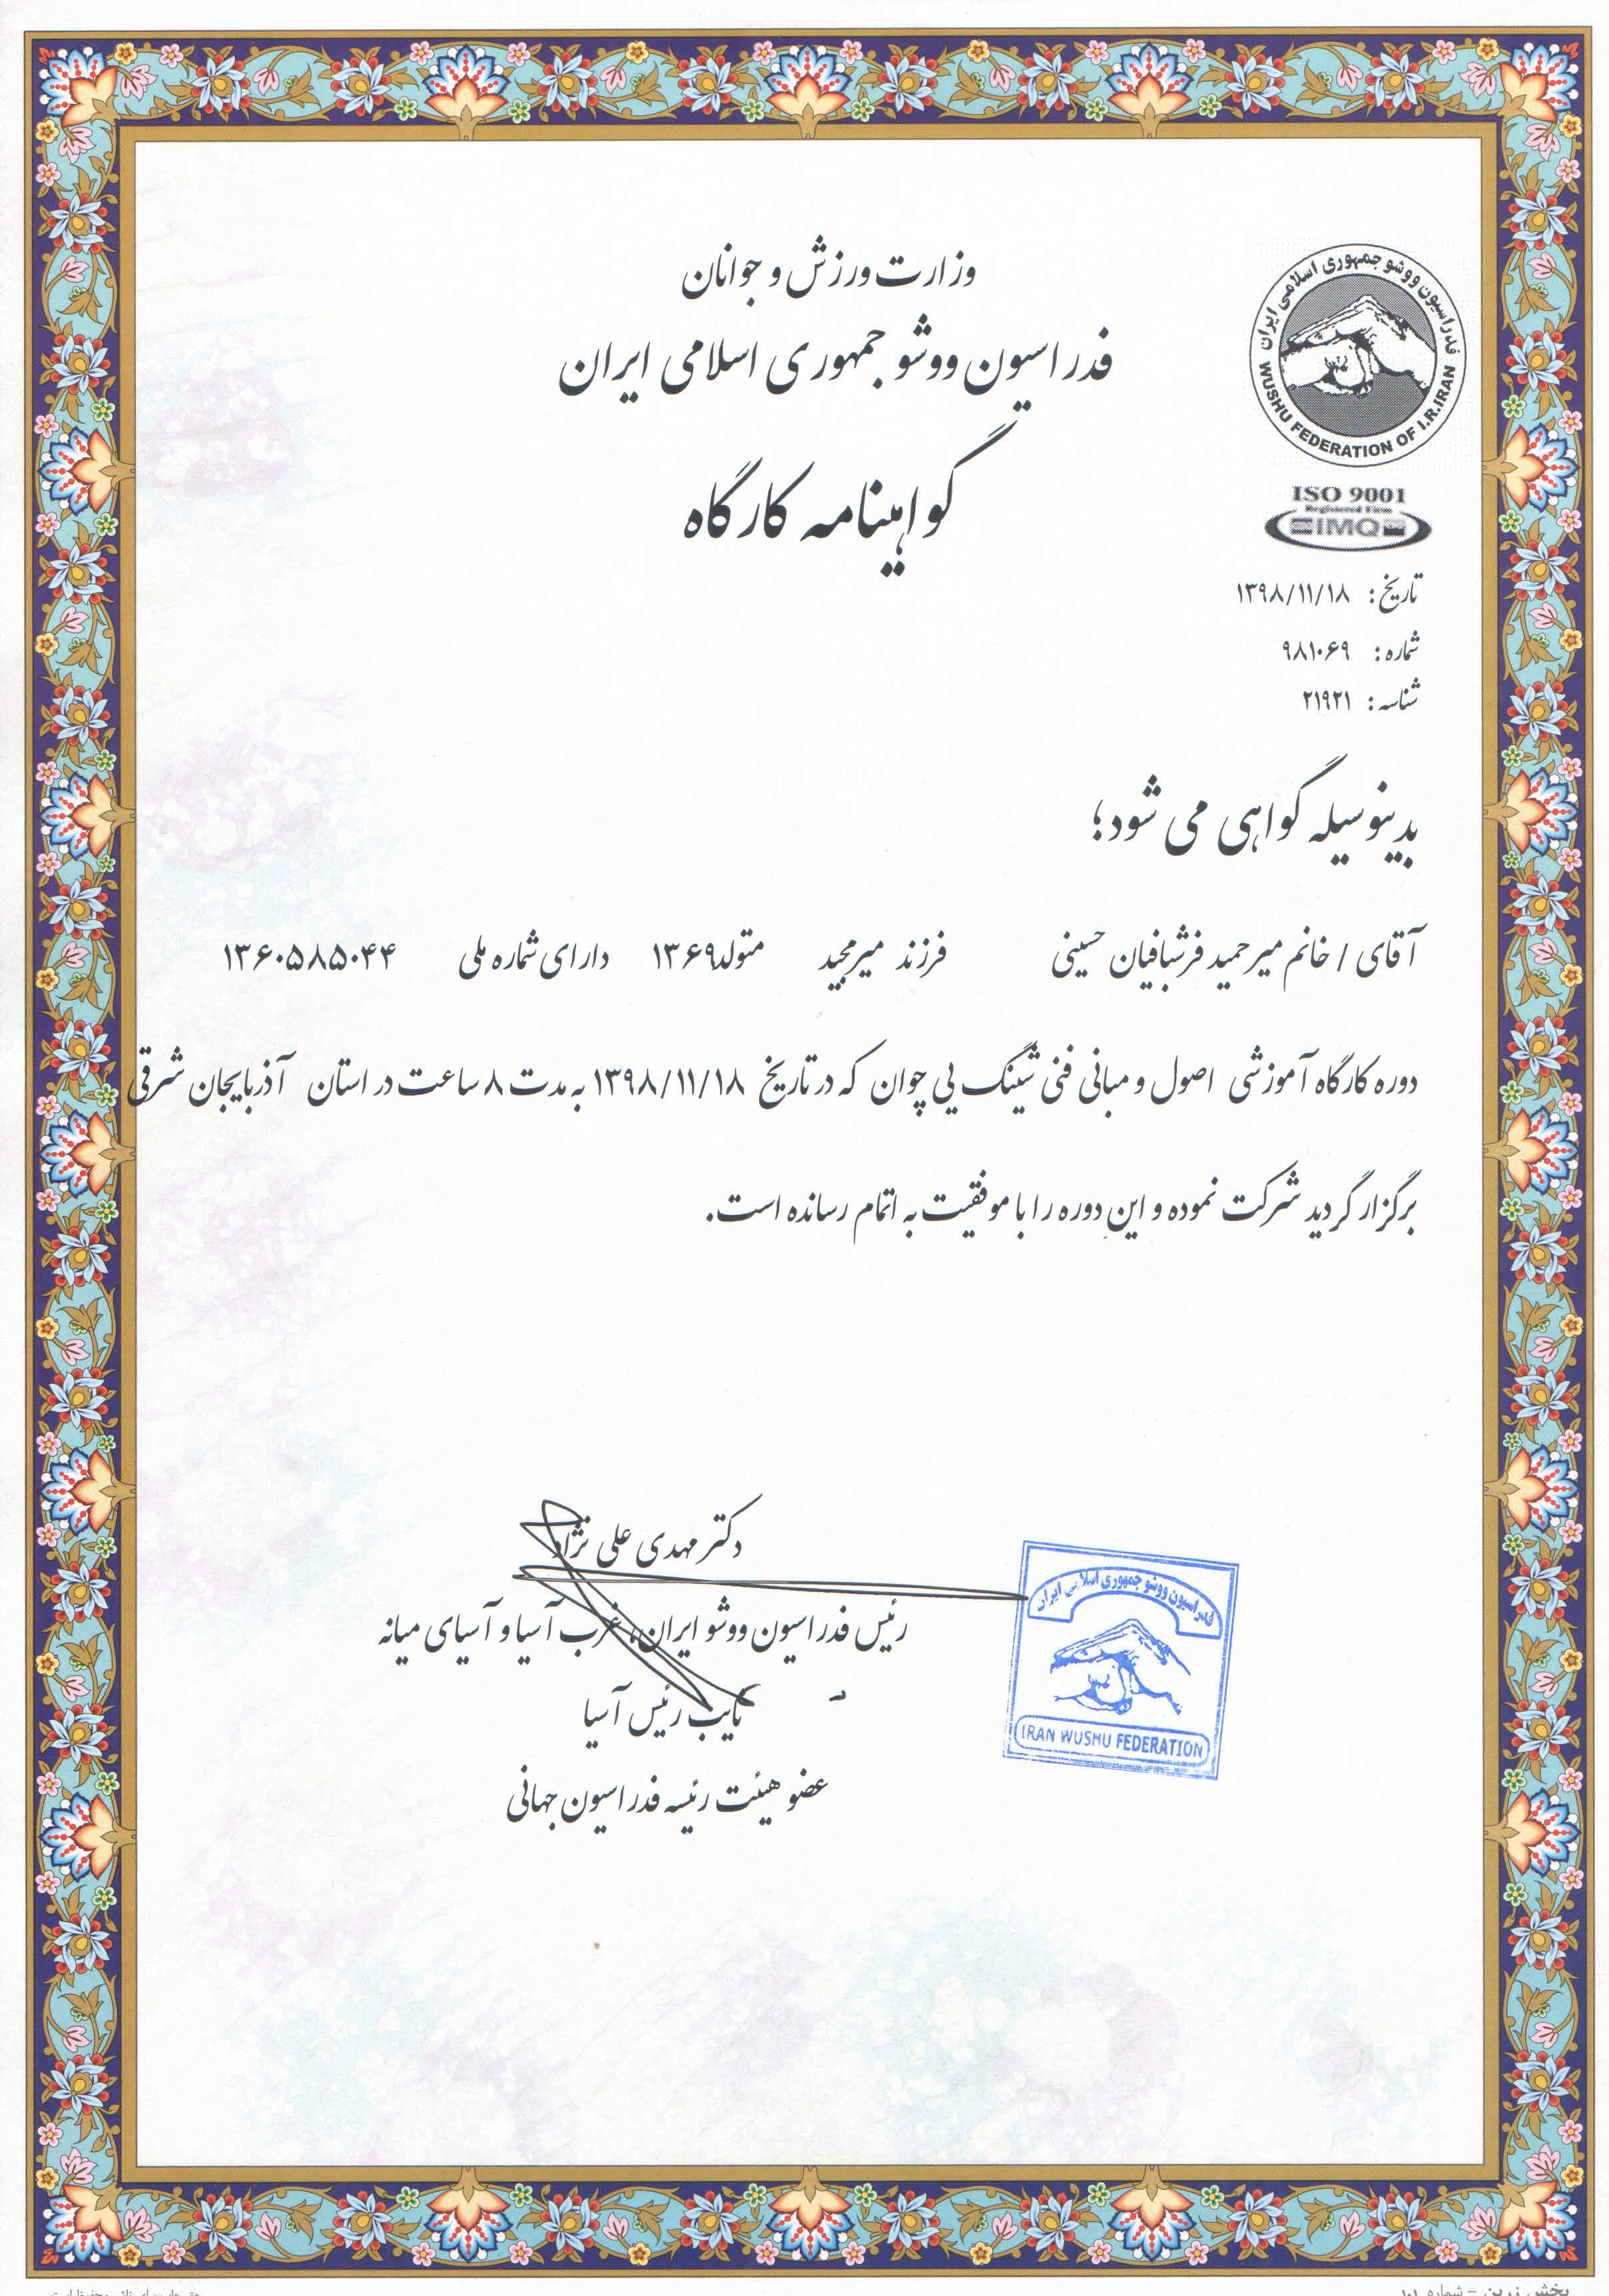 وزارت ورزش و جوانان
فدراسیون ووشو جمهوری اسلامی ایران
گواهینامه کارگاه
فدراسیون ووشو جمهوری اسلامی ایران
WUSHU FEDERATION OF I.R.IRAN
ISO 9001
Registered Firm
IMQ
تاریخ: ۱۳۹۸/۱۱/۱۸
شماره: ۹۸۱۰۶۹
شناسه: ۲۱۹۲۱
بدینوسیله گواهی می شود؛
آقای / خانم میرحمید فرشبافیان حسینی فرزند میرمجید متولد ۱۳۶۹ دارای شماره ملی ۱۳۶۰۵۸۵۰۴۴
دوره کارگاه آموزشی اصول و مبانی فنی شینگ یی چوان که در تاریخ ۱۳۹۸/۱۱/۱۸ به مدت ۸ ساعت در استان آذربایجان شرقی
برگزار گردید شرکت نموده و این دوره را با موفقیت به اتمام رسانده است.
دکتر مهدی علی نژاد
رئیس فدراسیون ووشو ایران، غرب آسیا و آسیای میانه
نایب رئیس آسیا
عضو هیئت رئیسه فدراسیون جهانی
فدراسیون ووشو جمهوری اسلامی ایران
IRAN WUSHU FEDERATION
پخش زرین - شماره ۱۰۱